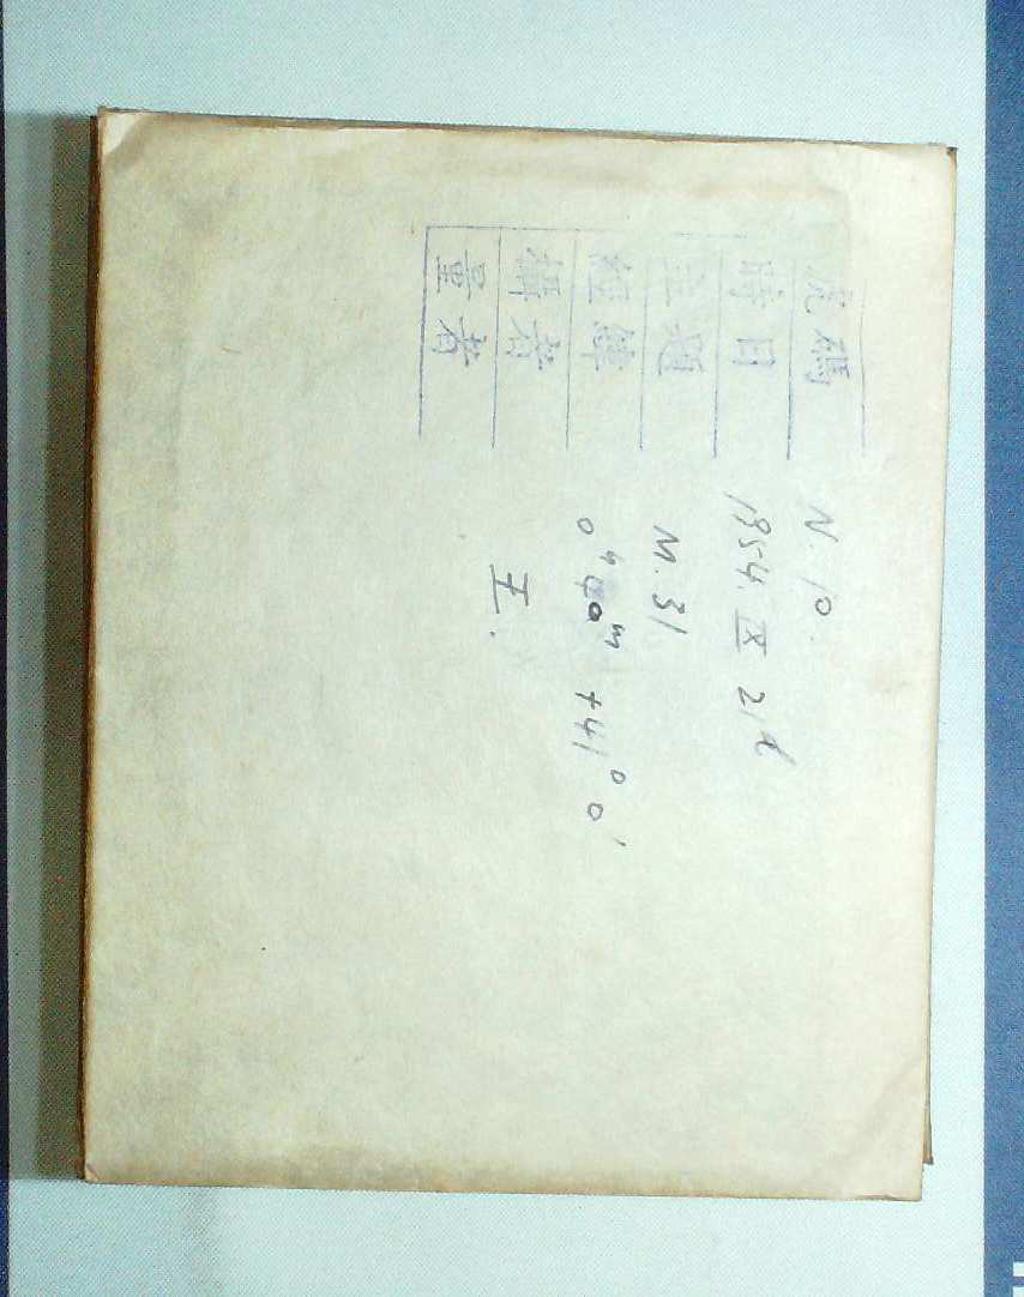 號碼 N. 10.
時日 1954. IX 21d
主題 M. 31
經緯 0h 40m +41° 0'
攝者 王.
量者